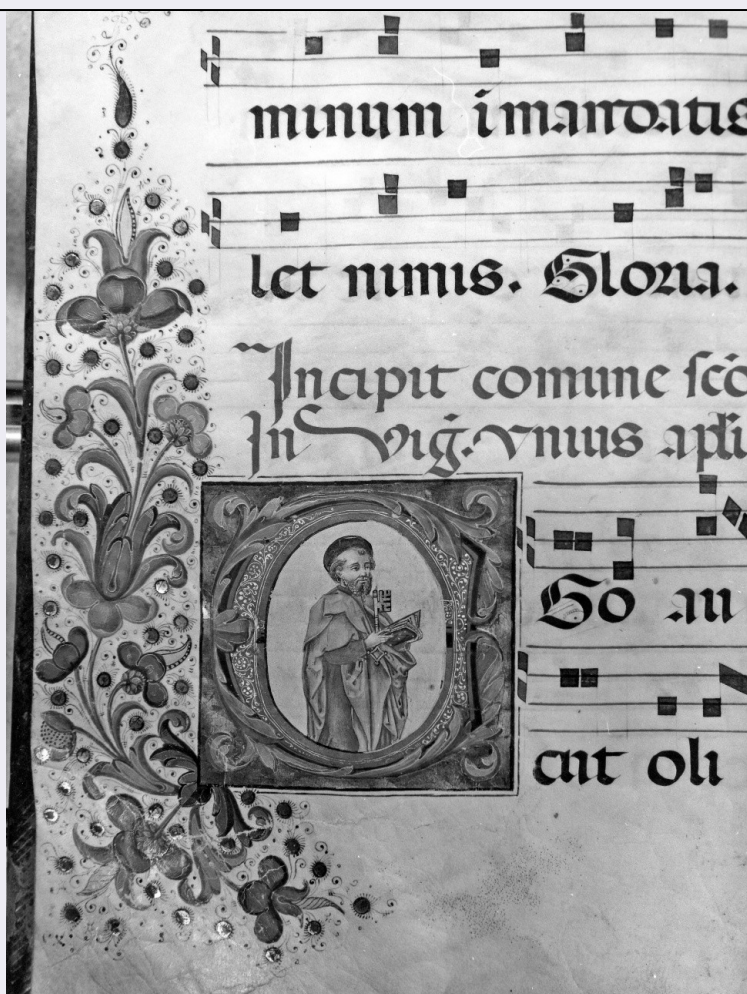 minum ī mandatis
let nimis. Gloria.
Incipit comune scō
In vigͥ. vnius apl̄i
Go au
cut oli